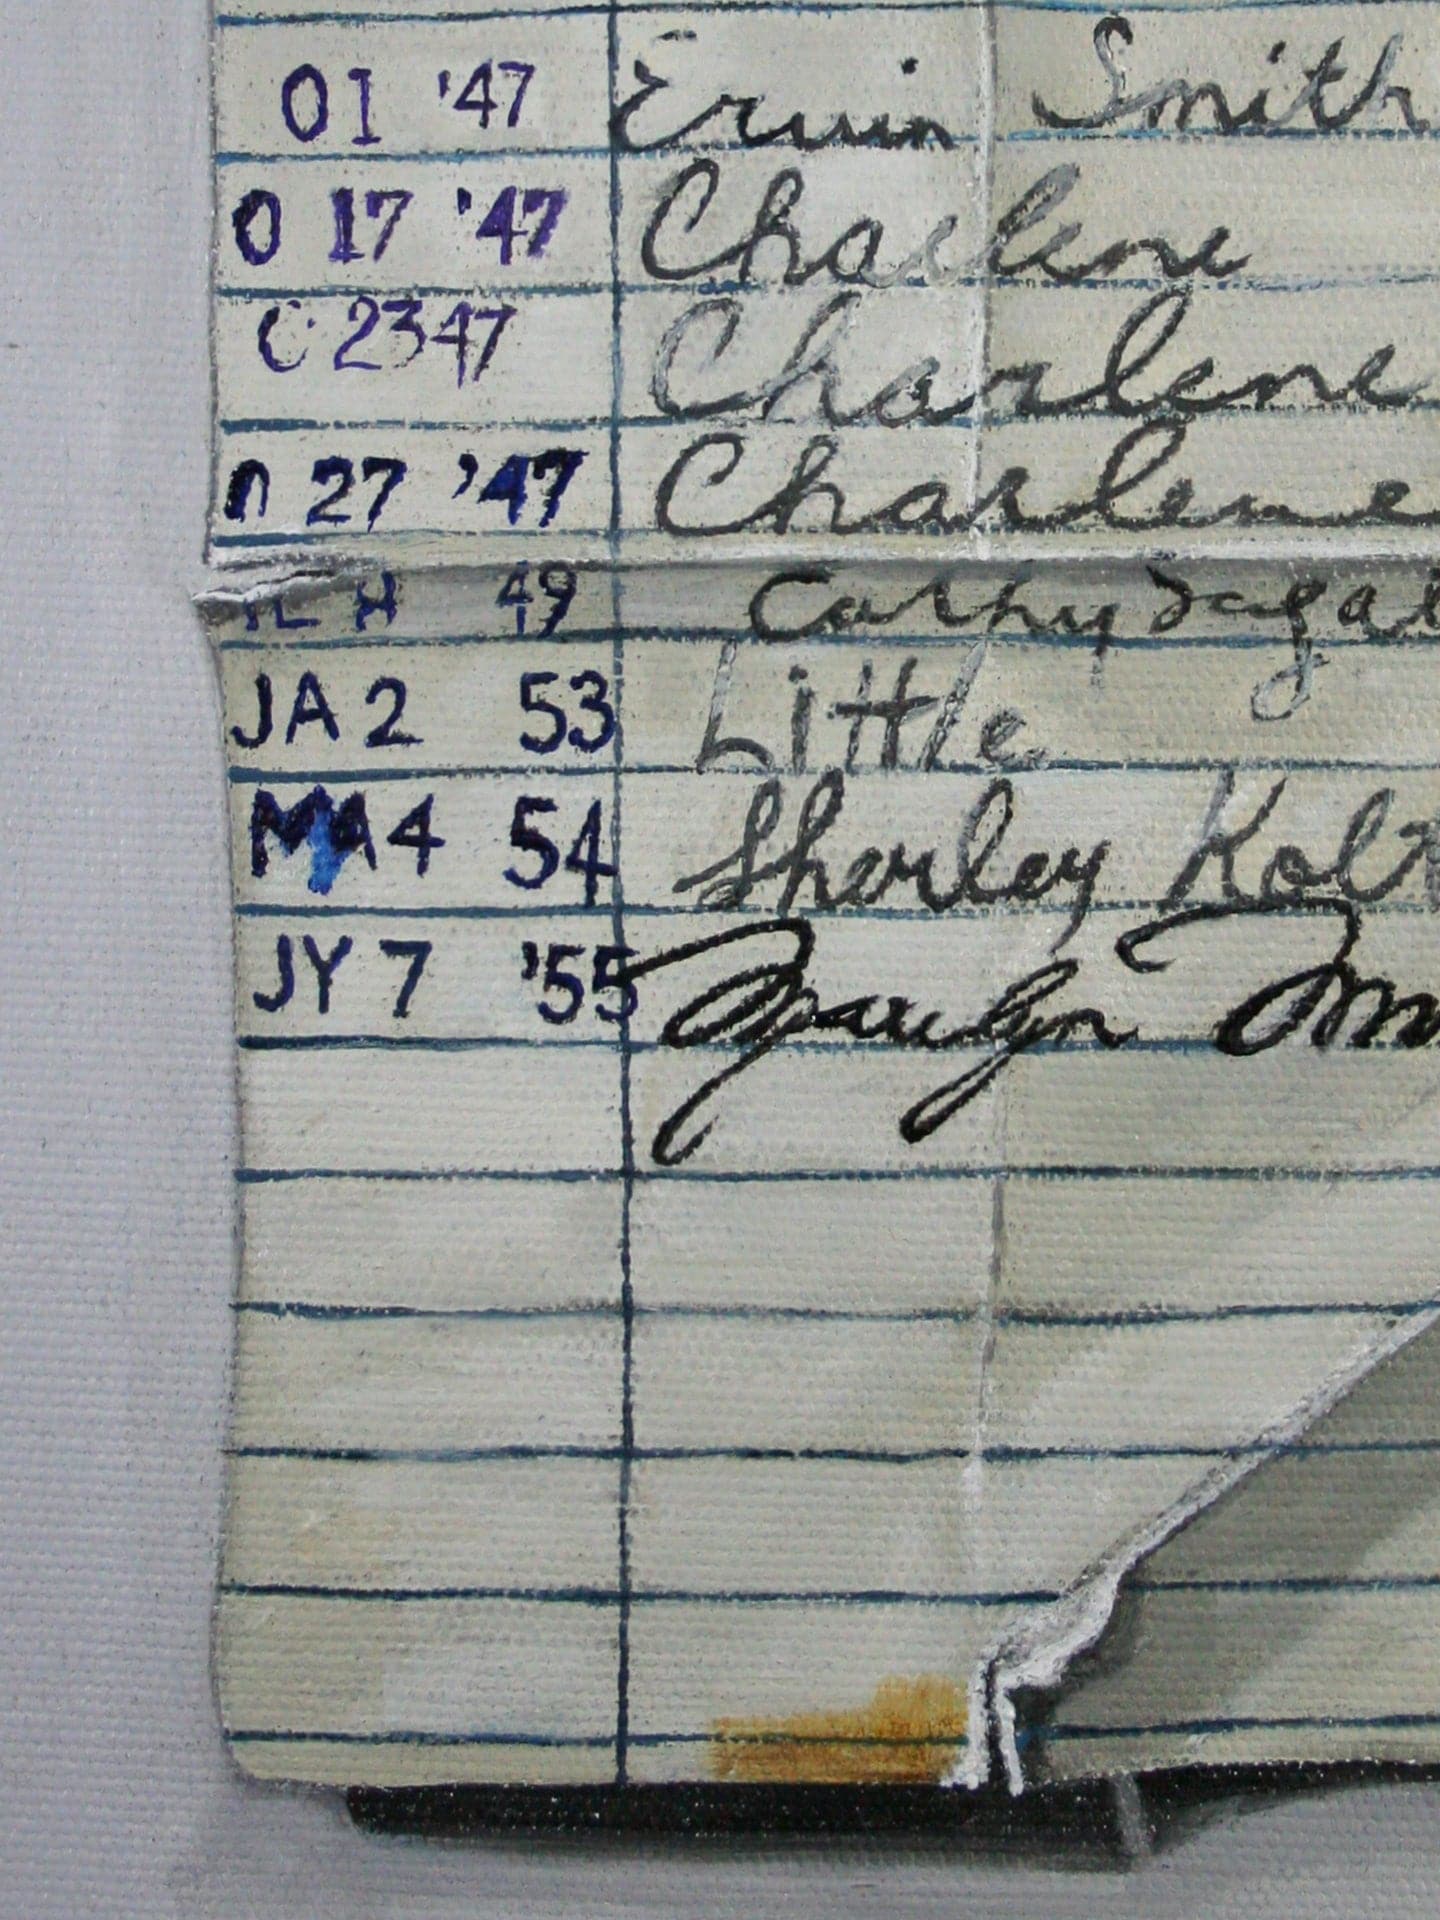 O1 '47 Ervin Smith
O 17 '47 Charlene
C 23 47 Charlene
27 '47 Charlene
49 Cathy
JA 2 53 Little
MA 4 54 Sherley
JY 7 '55 Marilyn